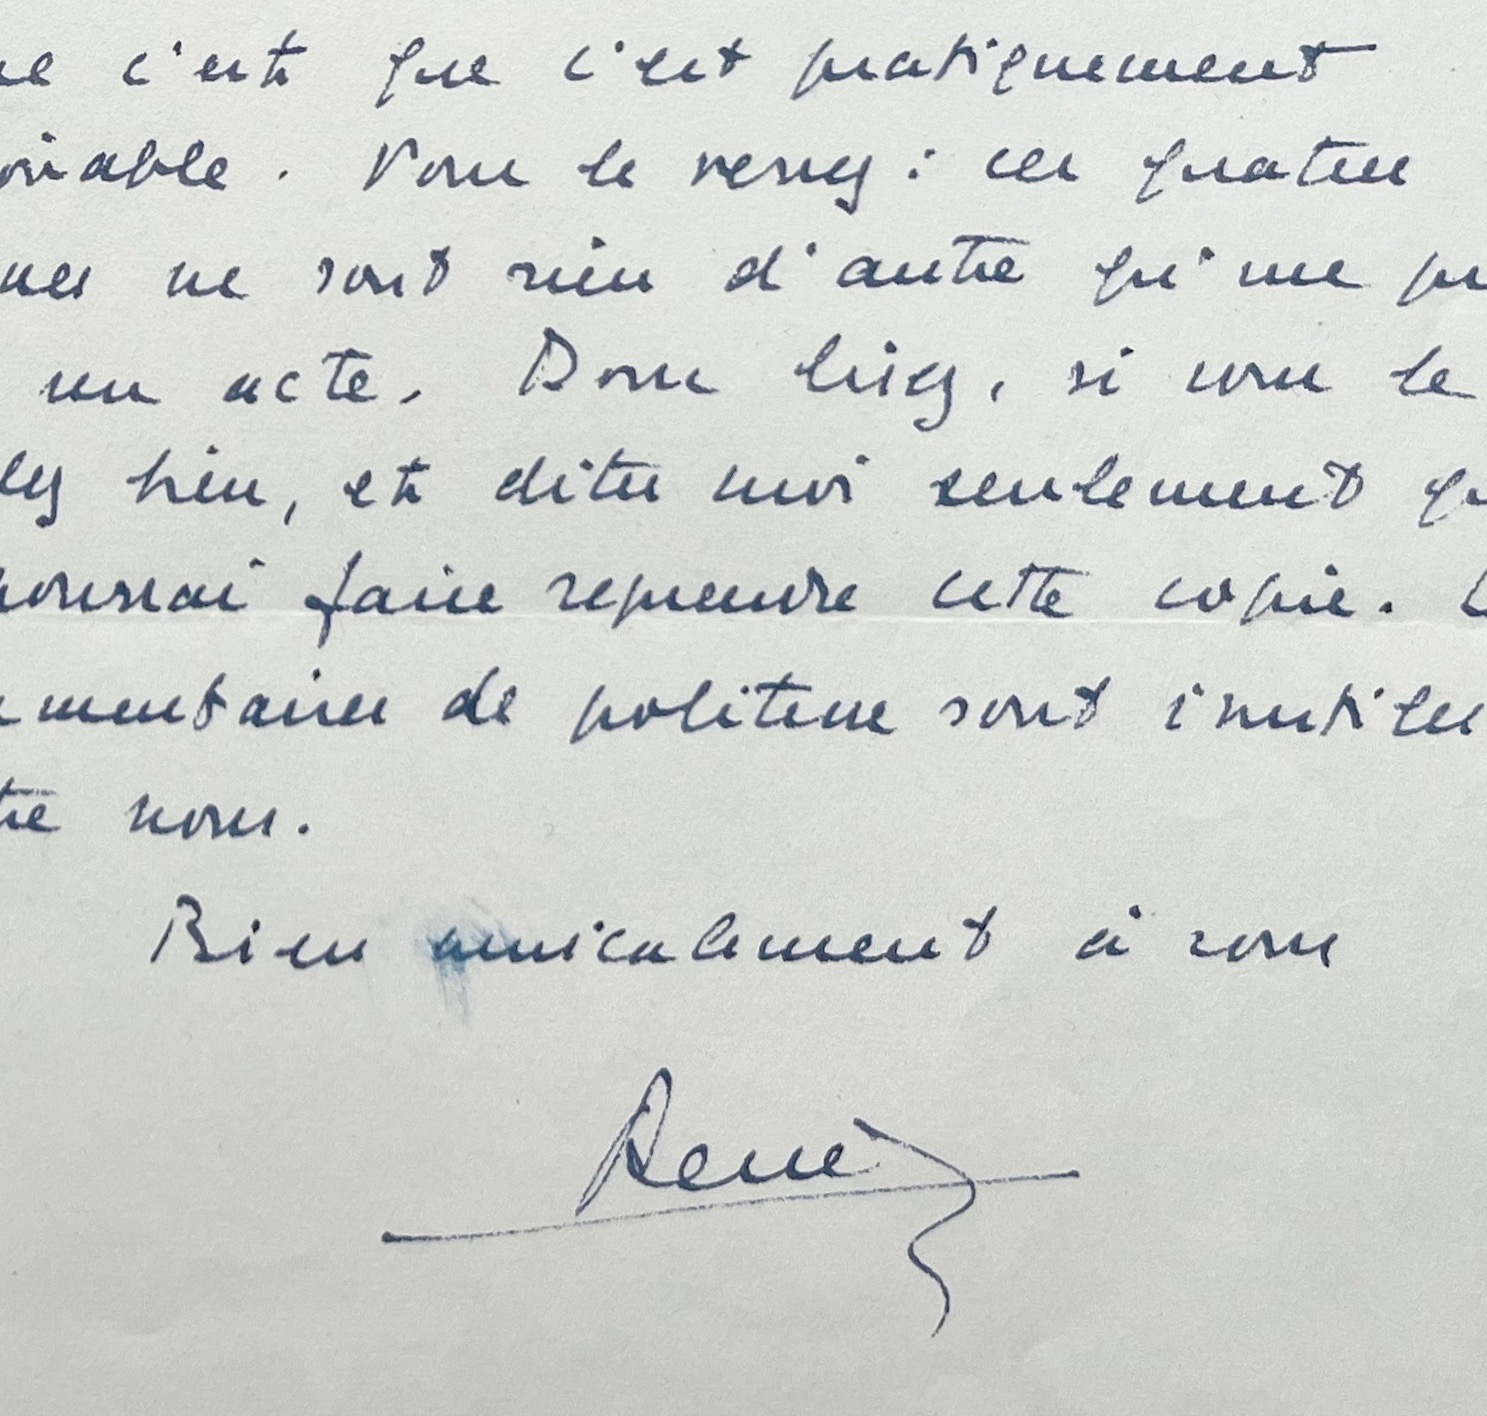 c'est que c'est pratiquement
Vous le verrez : ces quatre
ne sont rien d'autre qu'une
un acte. Donc lisez, si vous le
bien, et dites moi seulement
pourrai faire reprendre cette copie.
de politesse sont inutiles
nous.
Bien amicalement à vous
René